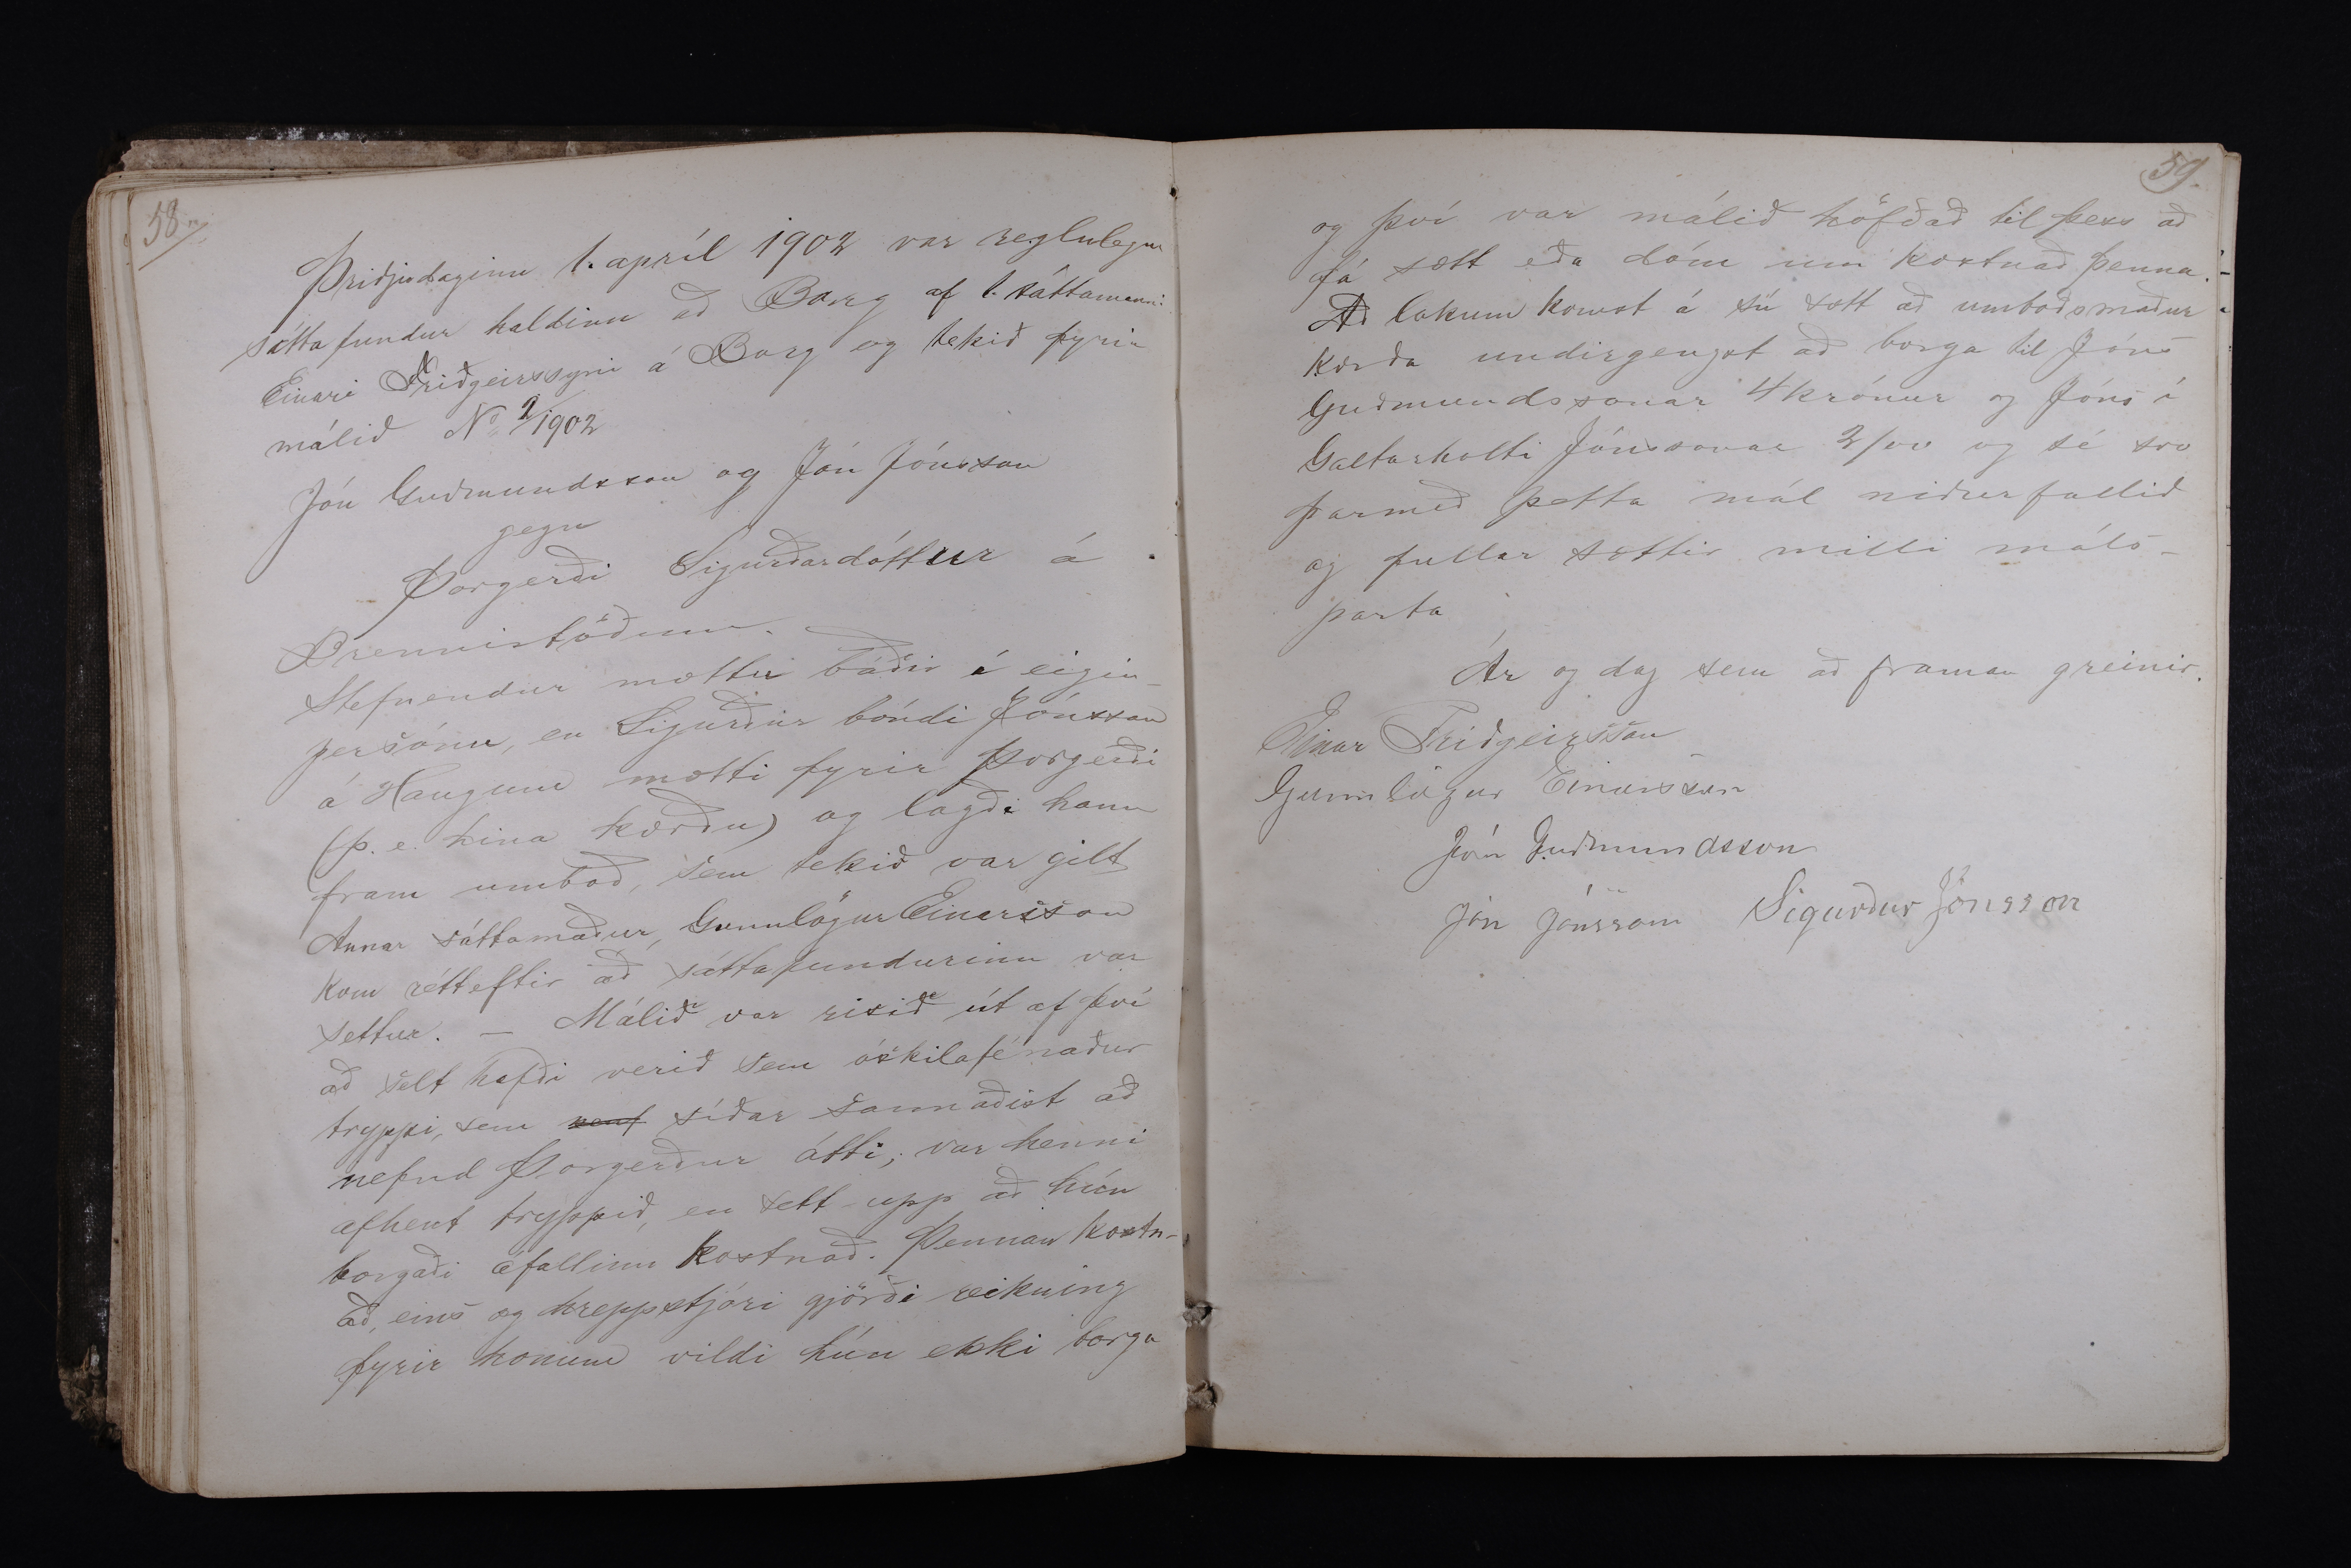 58.
Þriðjudaginn 1. apríl 1902 var reglulegur
sáttafundur haldinn að Borg af 1. sáttamanni:
Einari Friðgeirssyni á Borg og tekið fyrir
málið No 2/1902
Jón Guðmundsson og Jón Jónsson
gegn
Þorgerði Sigurðardóttur á
Brennistöðum.
Stefnendur mættu báðir í eigin-
persónu, en Sigurður bóndi Jónsson
á Haugum mætti fyrir Þorgerði
(þ. e. hina kærðu) og lagði hann
fram umboð, sem tekið var gilt
Annar sáttamaður, Gunnlögur Einarsson
kom rétt eftir að sáttafundurinn var
settur. — Málið var risið út af því
að selt hafði verið sem óskilafénaður
tryppi, sem síðar sannaðist að
nefnd Þorgerður átti; var henni
afhent tryppið, en sett upp að hún
borgaði áfallinn kostnað. Þennan kostn-
að, eins og hreppstjóri gjörði reikning
fyrir honum vildi hún ekki borga
59.
og því var málið höfðað til þess að
fá sætt eða dóm um kostnað þenna.
Að lokum komst á sú sætt að umboðsmaður
kærða undirgengst að borga til Jóns
Guðmundssonar 4 krónur og Jóns í
Galtarholti Jónssonar 2/00 og sé svo
þarmeð þetta mál niðurfallið
og fullar sættir milli máls-
parta
Ár og dag sem að framan greinir.
Einar Friðgeirsson
Gunnlögur Einarsson
Jón Guðmundsson
Jón Jónsson Sigurður Jónsson